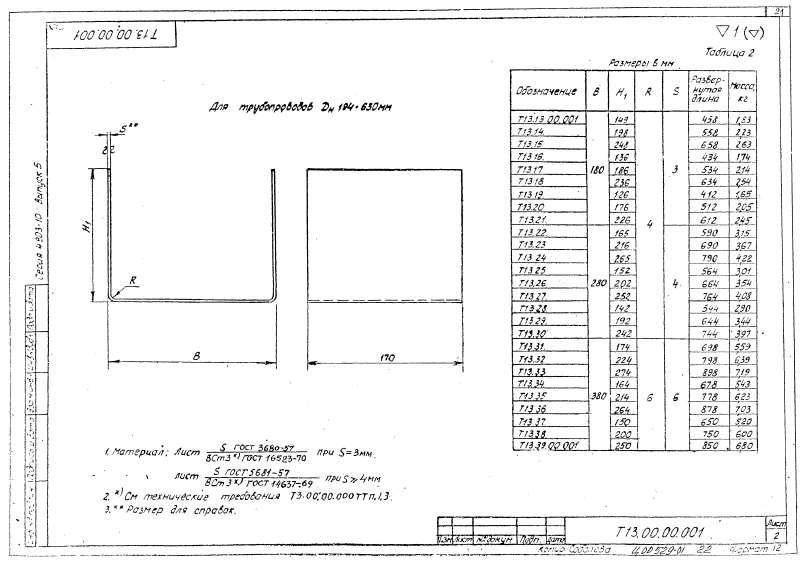 21
Т13.00.00.001
▽1 (▽)
Таблица 2
Размеры в мм
Для трубопроводов Dн 194-630мм
Обозначение B H₁ R S Развернутая длина Масса, кг
Т13.13.00.001 180 149 4 3 458 1,83
Т13.14 198 558 2,23
Т13.15 248 658 2,63
Т13.16 136 434 1,74
Т13.17 186 534 2,14
Т13.18 236 634 2,54
Т13.19 126 412 1,65
Т13.20 176 512 2,05
Т13.21 226 612 2,45
Т13.22 280 165 4 590 3,15
Т13.23 216 690 3,67
Т13.24 265 790 4,22
Т13.25 152 564 3,01
Т13.26 202 664 3,54
Т13.27 252 764 4,08
Т13.28 142 544 2,90
Т13.29 192 644 3,44
Т13.30 242 744 3,97
Т13.31 380 174 6 6 698 5,59
Т13.32 224 798 6,39
Т13.33 274 898 7,19
Т13.34 164 678 5,43
Т13.35 214 778 6,23
Т13.36 264 878 7,03
Т13.37 150 650 5,20
Т13.38 200 750 6,00
Т13.39.00.001 250 850 6,80
S**
H₁
R
B
170
1. Материал: Лист S ГОСТ 3680-57 / ВСт3 *) ГОСТ 16523-70 при S=3мм,
лист S ГОСТ 5681-57 / ВСт3 *) ГОСТ 14637-69 при S≥4мм
2. *) См технические требования Т3.00.00.000ТТ п.1,3.
3. ** Размер для справок.
Серия 4.903-10 Выпуск 5
Изм. Лист № докум Подп. Дата
Т13.00.00.001
Лист
2
Копир Соболева Ц.00529-01 22 Формат 12